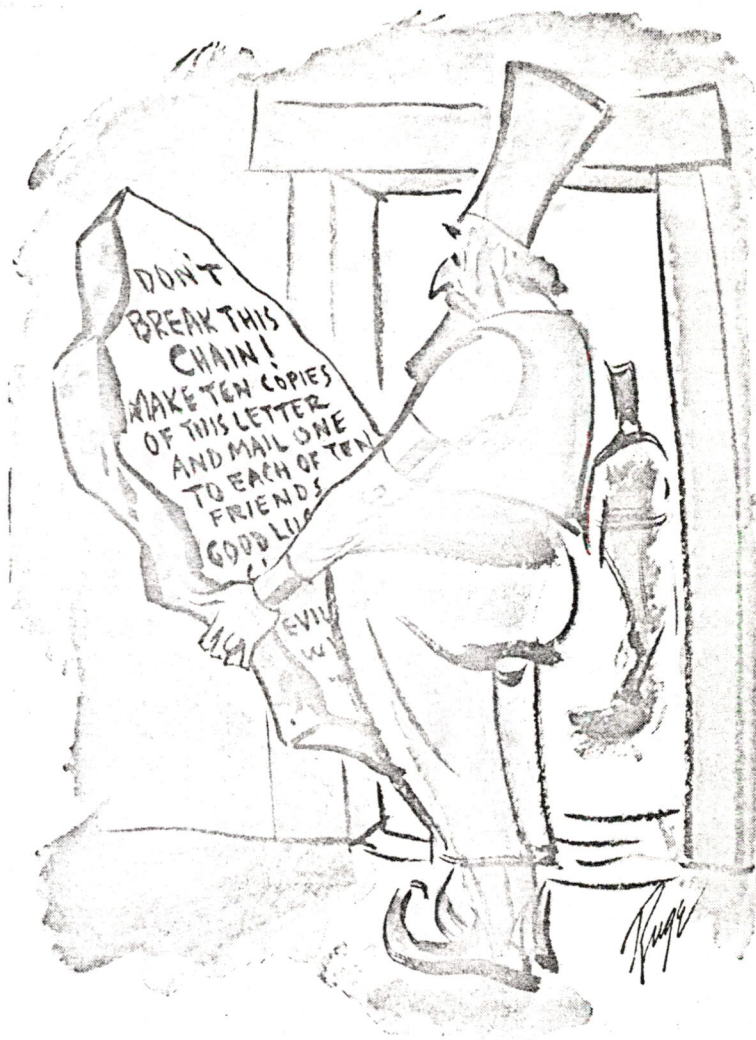 DON'T
BREAK THIS
CHAIN!
MAKE TEN COPIES
OF THIS LETTER
AND MAIL ONE
TO EACH OF TEN
FRIENDS
GOOD LUC
EVIL
WI
Ruge